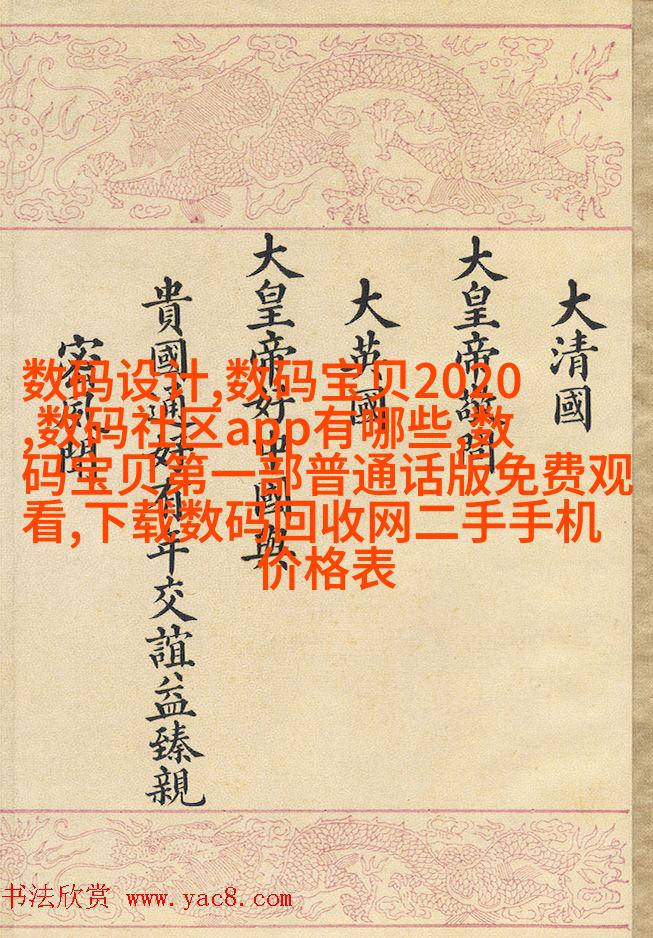 大清國
大皇帝敬問
大英國
大皇帝好中國與
貴國通好有年交誼益臻親
密
数码设计,数码宝贝2020
,数码社区app有哪些,数
码宝贝第一部普通话版免费观
看,下载数码回收网二手手机
价格表
书法欣赏 www.yac8.com